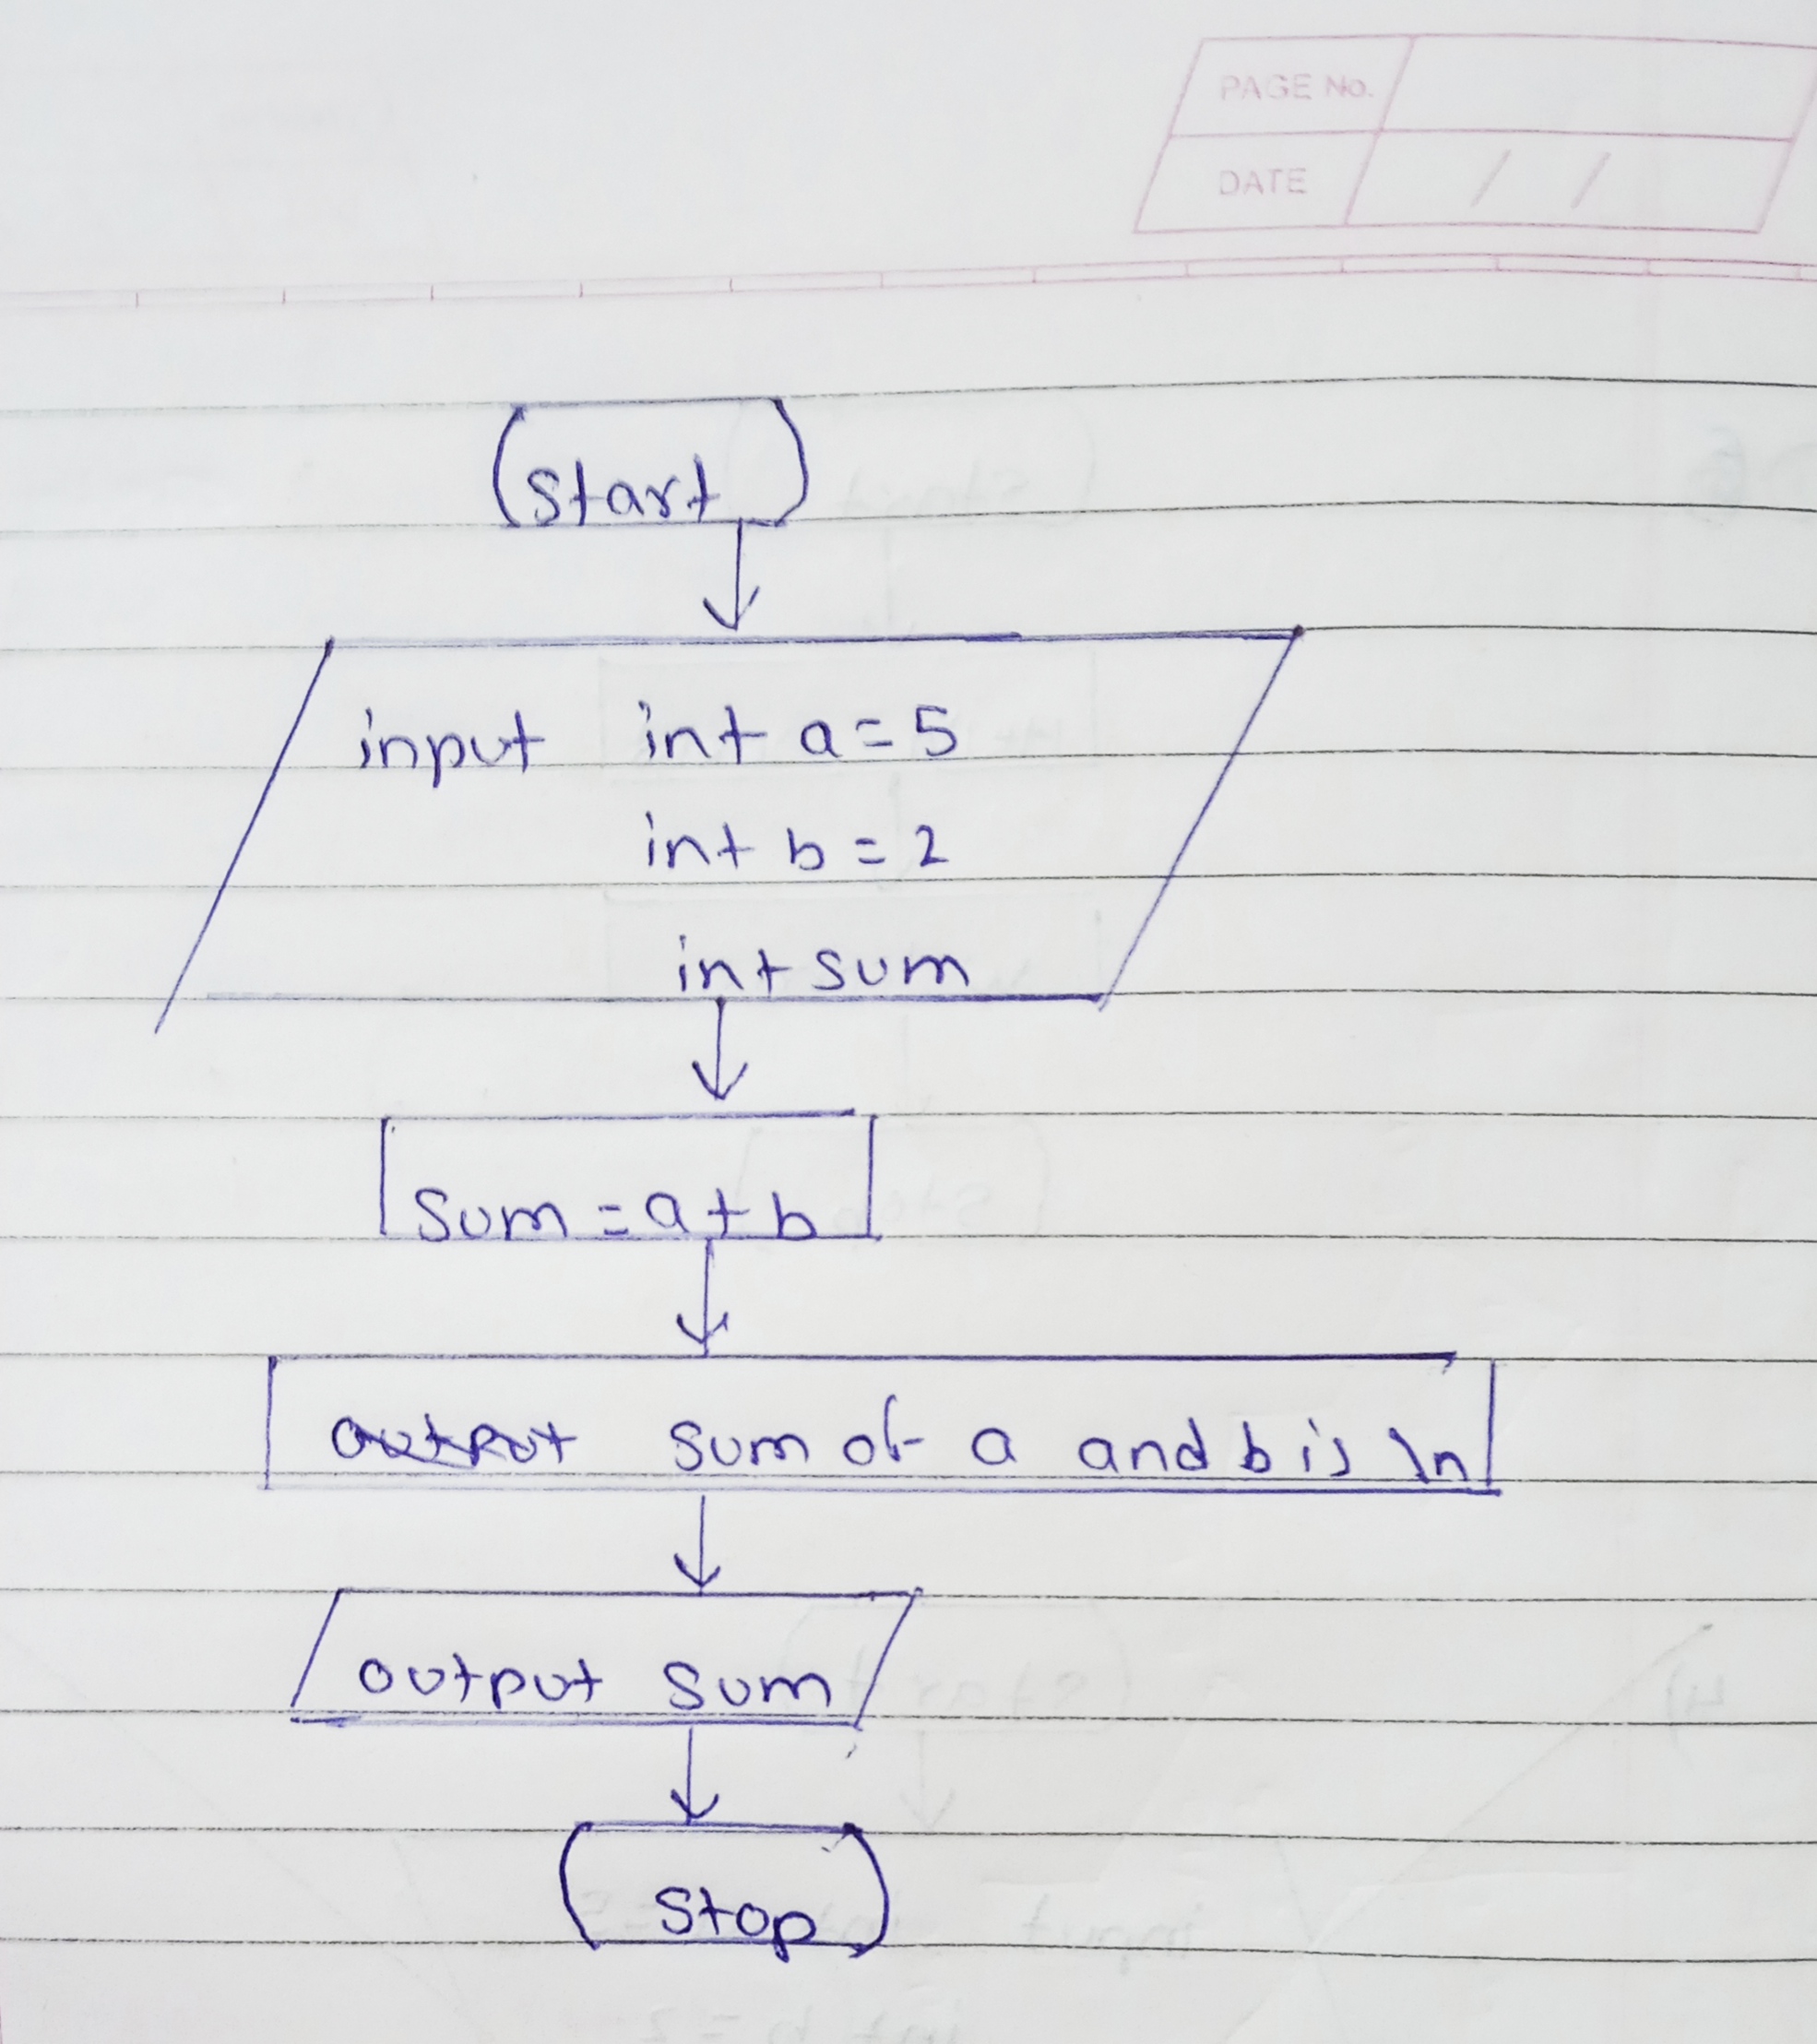 PAGE No.
DATE / /
Start
input int a=5
int b=2
int sum
Sum=a+b
output sum of a and b is \n
output sum
Stop